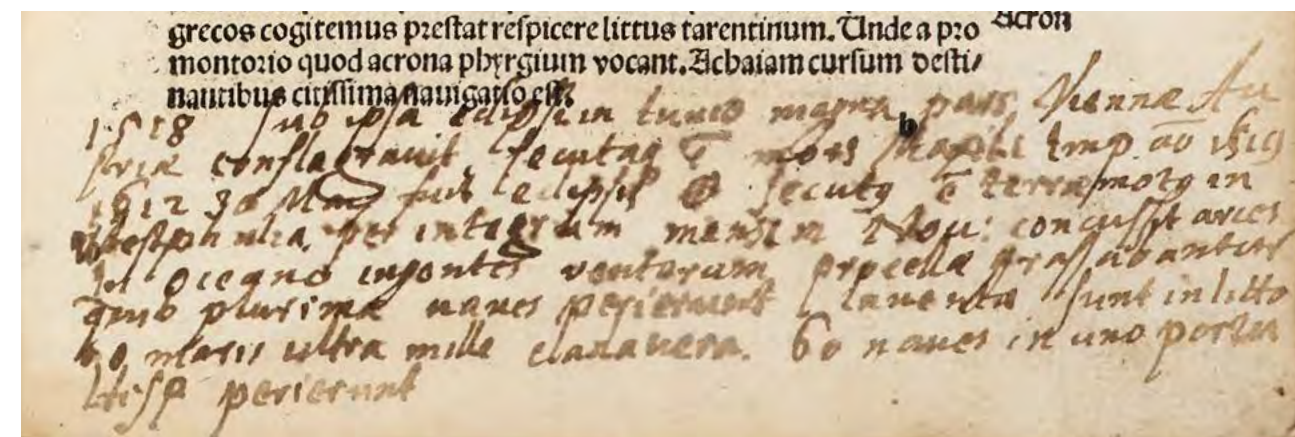 grecos cogitemus prestat respicere littus tarentinum. Unde a pro
Acron
montorio quod acrona phyrgium vocant. Achaiam cursum desti/
nantibus citissima nauigatio est.
1518 Sub ipsa eclipsi in Iunio magna pars Viennæ Au
striæ conflagrauit, secutaq ē mors Maxil: Imp. aō 1519
1612 30 Maij fuit eclipsis ☉ secutq ē terræmotq in
Westphalia, per integrum mensem Nou: concussit arces
In Oceano ingentes ventorum procellæ grassabantur
quib plurimæ naues perierunt Inuenta sunt in litto
re maris ultra mille cadauera. 60 naues in uno portu
Hisp perierunt